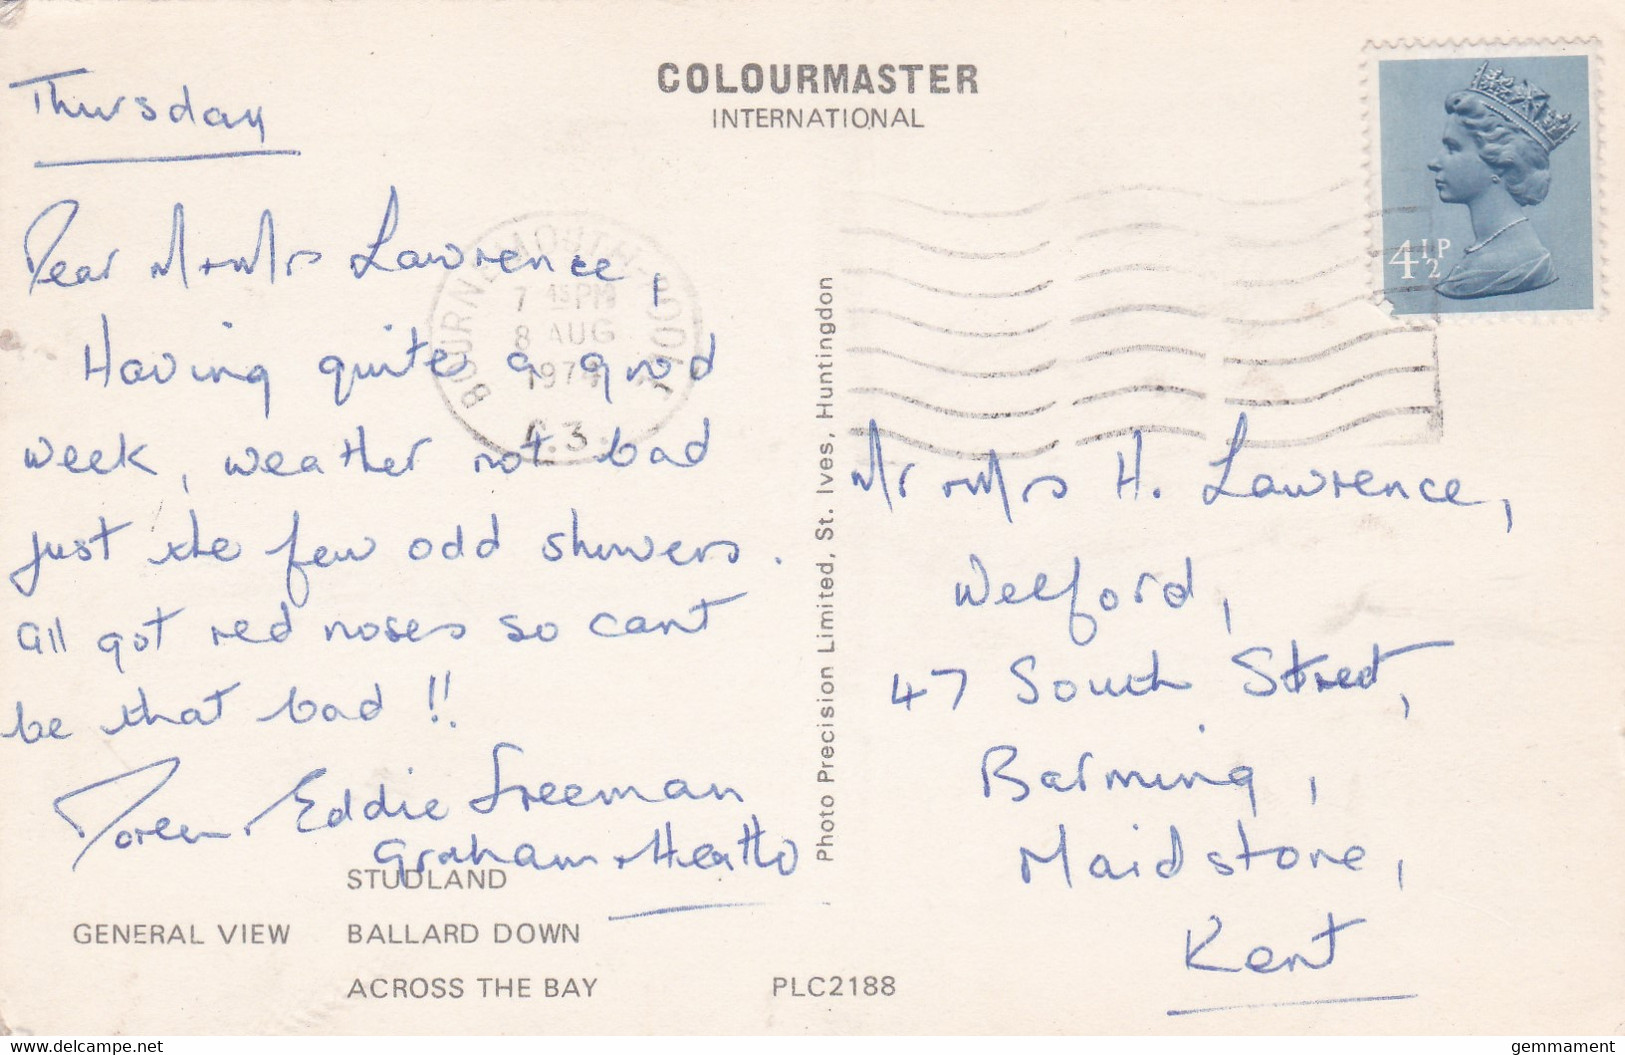 COLOURMASTER
INTERNATIONAL
Thursday
Dear Mr + Mrs Lawrence,
Having quite a good
week, weather not bad
just the few odd showers.
all got red noses so cant
be that bad !!
Doreen + Eddie Freeman
Graham + Heath
STUDLAND
GENERAL VIEW BALLARD DOWN
ACROSS THE BAY
PLC2188
Photo Precision Limited, St. Ives, Huntingdon
BOURNEMOUTH-POOLE
7 45 PM
8 AUG
1974
4½P
Mr + Mrs H. Lawrence,
Welford,
47 South Street,
Barming,
Maidstone,
Kent
www.delcampe.net
gemmament